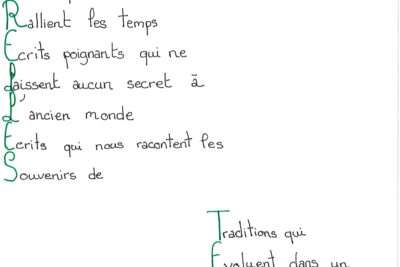 Rallient les temps
Ecrits poignants qui ne
Laissent aucun secret à
L'ancien monde
Ecrits qui nous racontent les
Souvenirs de
Traditions qui
Evoluent dans un